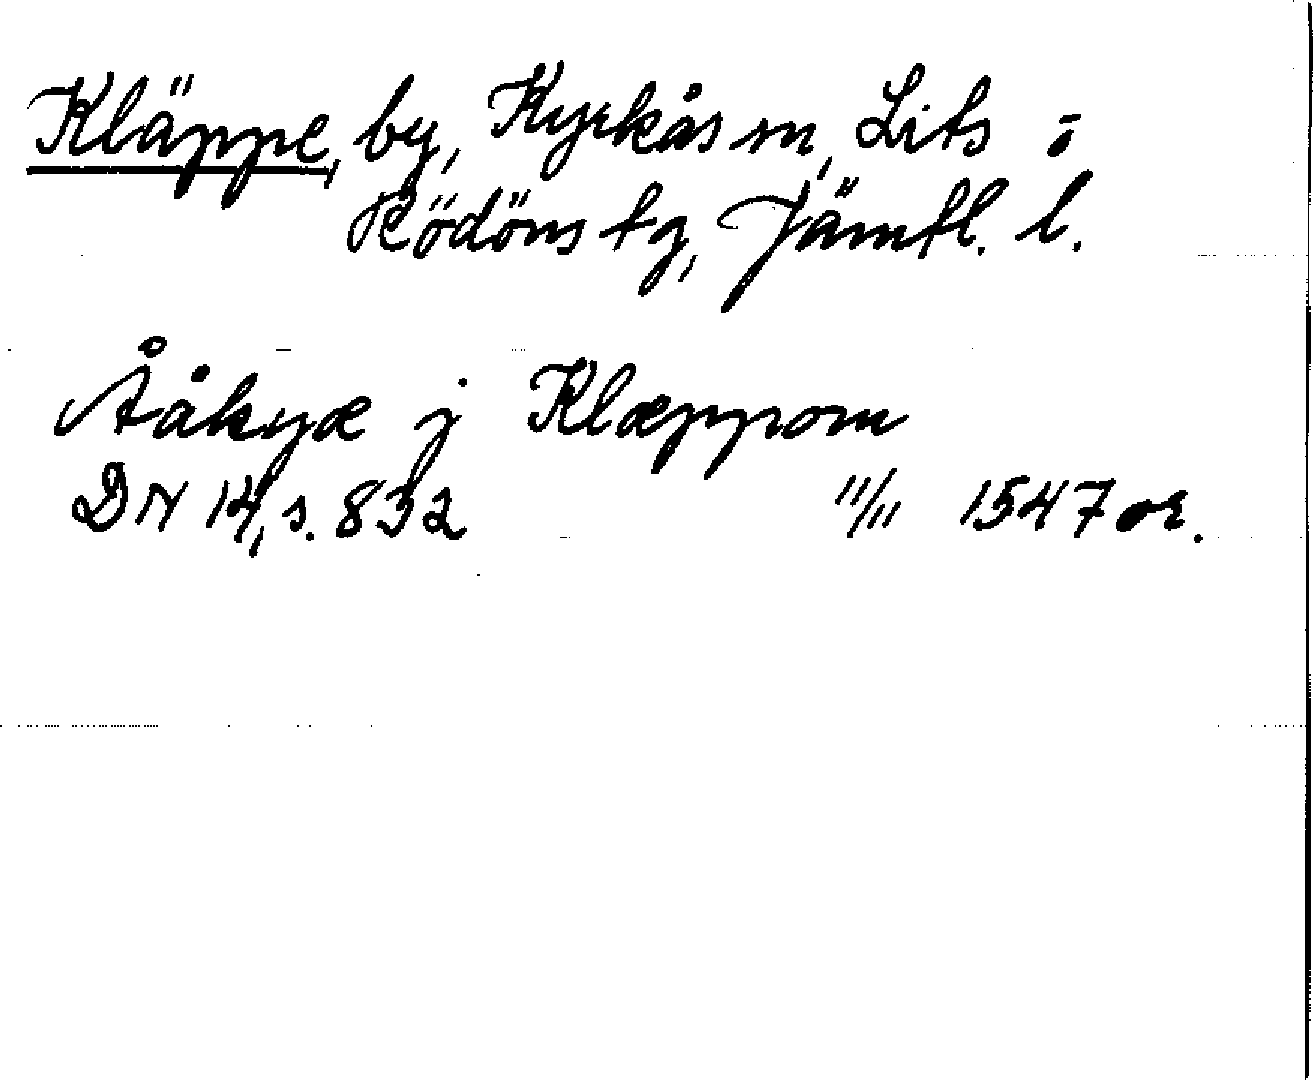 Kläppe, by, Kyrkås sn, Lits o
Rödöns tg, Jämtl. l.
Ååkyæ j Klæppom
DN 14, s. 832 11/11 1547 or.